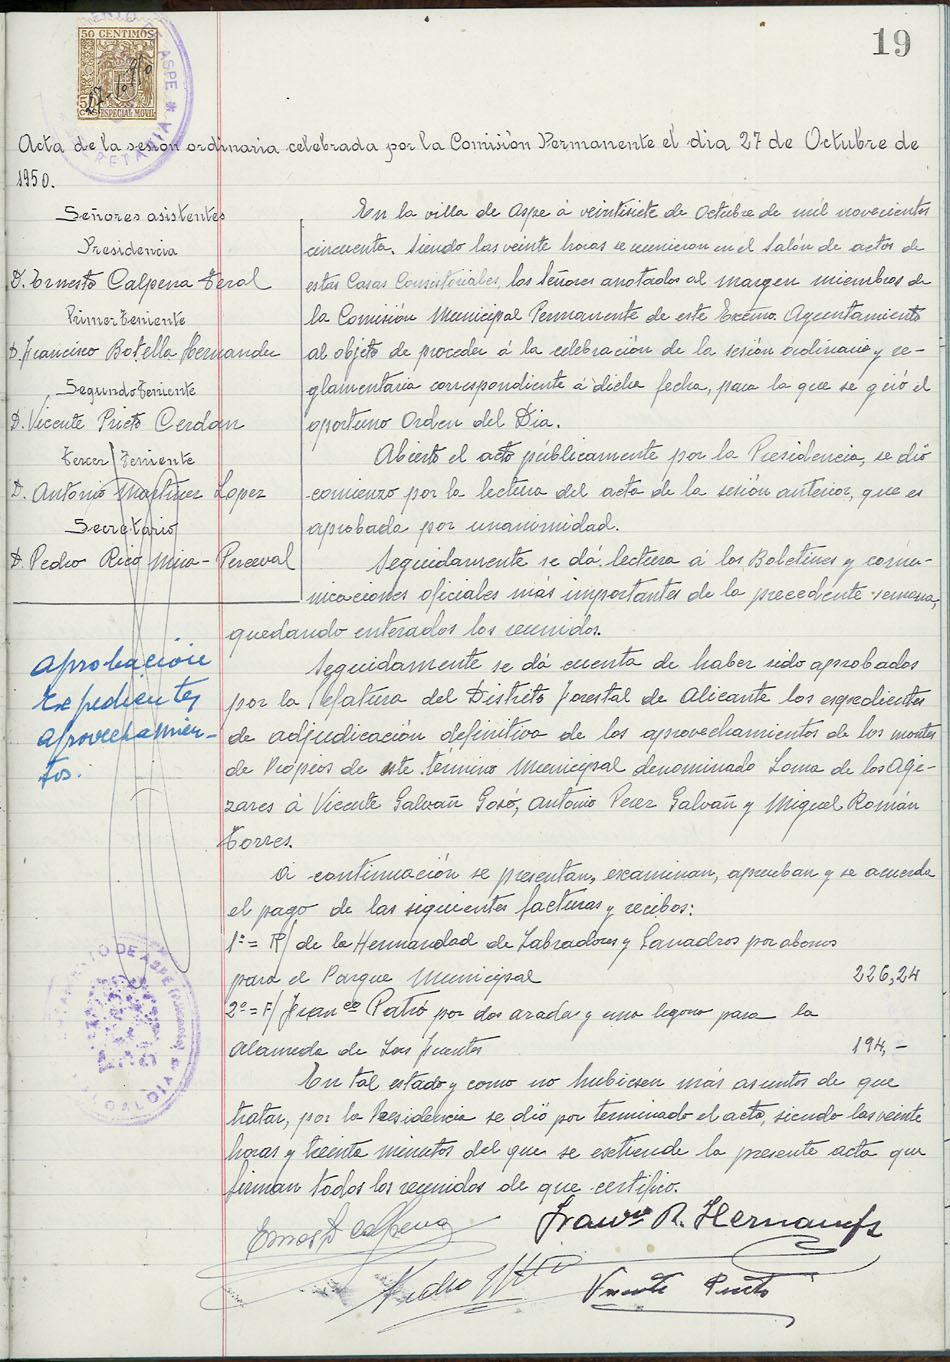 19
50 CENTIMOS
ESPECIAL MOVIL
27-10-950
AYUNTAMIENTO DE ASPE * SECRETARIA *
Acta de la sesión ordinaria celebrada por la Comisión Permanente el dia 27 de Octubre de
1950.
Señores asistentes
Presidencia
D. Ernesto Calpena Feral
Primer Teniente
D. Francisco Botella Hernandez
Segundo Teniente
D. Vicente Prieto Cerdan
Tercer Teniente
D. Antonio Martinez Lopez
Secretario
D. Pedro Rico Mira-Perceval
En la villa de Aspe á veintisiete de Octubre de mil novecientos
cincuenta. Siendo las veinte horas se reunieron en el Salón de actos de
estas Casas Consistoriales, los Señores anotados al margen miembros de
la Comisión Municipal Permanente de este Excmo. Ayuntamiento
al objeto de proceder á la celebración de la sesión ordinaria y re-
glamentaria correspondiente á dicha fecha, para la que se giró el
oportuno Orden del Dia.
Abierto el acto públicamente por la Presidencia, se dió
comienzo por la lectura del acta de la sesión anterior, que es
aprobada por unanimidad.
Seguidamente se dá lectura á los Boletines y comu-
nicaciones oficiales más importantes de la precedente semana,
quedando enterados los reunidos.
Aprobación
Expedientes
aprovechamien-
tos.
Seguidamente se dá cuenta de haber sido aprobados
por la Jefatura del Distrito Forestal de Alicante los expedientes
de adjudicación definitiva de los aprovechamientos de los montes
de Propios de este término Municipal denominado Loma de los Alje-
zares á Vicente Galvañ Gosó, Antonio Perez Galvañ y Miguel Román
Torres.
A continuación se presentan, examinan, aprueban y se acuerda
el pago de las siguientes facturas y recibos:
1ª= R/ de la Hermandad de Labradores y Ganadros por abonos
para el Parque Municipal 226,24
2ª= F/ Franco Patró por dos arados y una legona para la
Alameda de Las fuentes 194,-
En tal estado y como no hubiesen más asuntos de que
tratar, por la Presidencia se dió por terminado el acto, siendo las veinte
horas y treinta minutos del que se extiende la presente acta que
firman todos los reunidos de que certifico.
AYUNTAMIENTO DE ASPE (Alicante) * ALCALDIA *
Ernesto Calpena
Vicente Prieto